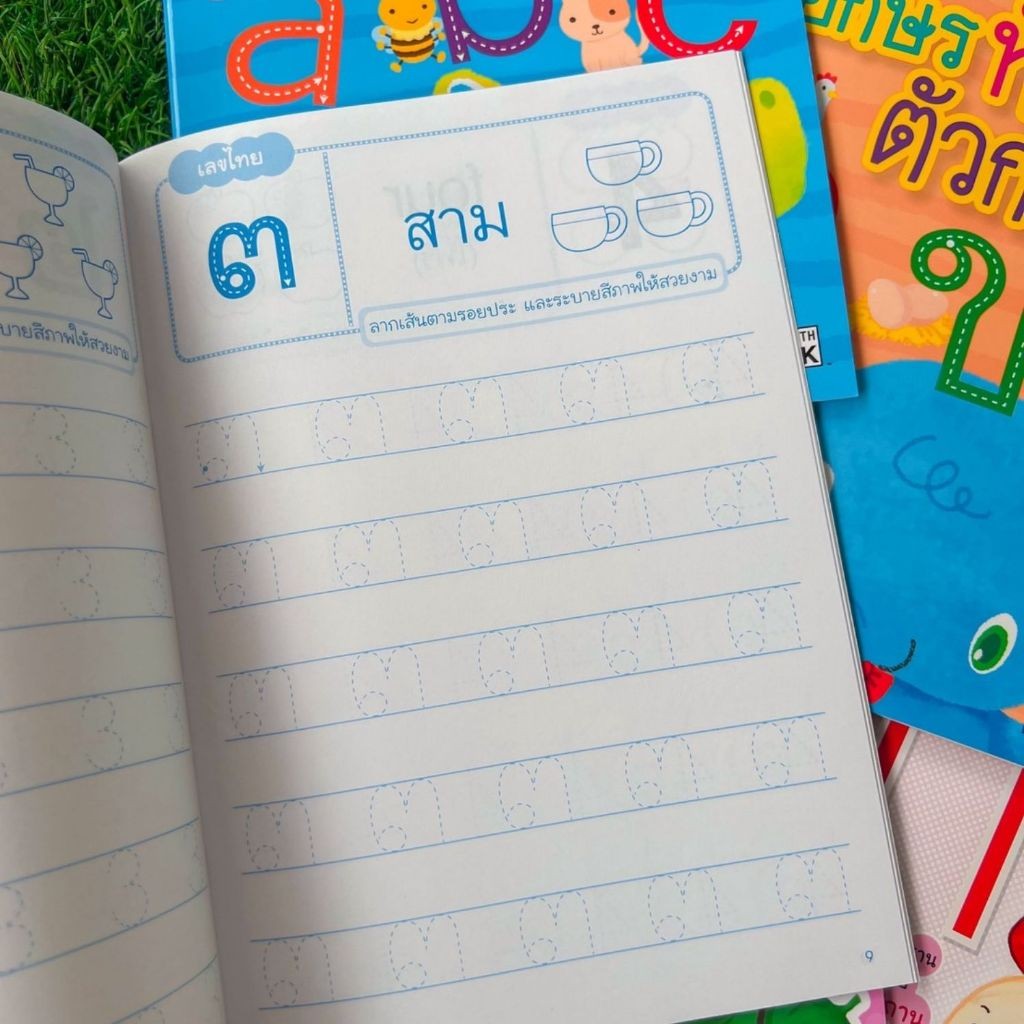 a b c
ตัวก
ข
TH
K
เลขไทย
๓
สาม
ลากเส้นตามรอยประ และระบายสีภาพให้สวยงาม
บายสีภาพให้สวยงาม
๓ ๓ ๓ ๓ ๓
๓ ๓ ๓ ๓ ๓
๓ ๓ ๓ ๓ ๓
๓ ๓ ๓ ๓ ๓
๓ ๓ ๓ ๓ ๓
3
3
3
3
9